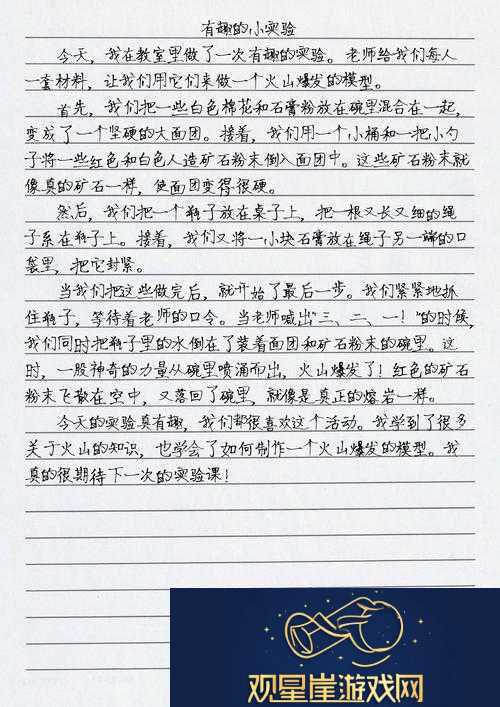 有趣的小实验
今天，我在教室里做了一次有趣的实验。老师给我们每人
一套材料，让我们用它们来做一个火山爆发的模型。
首先，我们把一些白色棉花和石膏粉放在碗里混合在一起，
变成了一个坚硬的大面团。接着，我们用一个小桶和一把小勺
子将一些红色和白色人造矿石粉末倒入面团中。这些矿石粉末就
像真的矿石一样，使面团变得很硬。
然后，我们把一个瓶子放在桌子上，把一根又长又细的绳
子系在瓶子上。接着，我们又将一小块石膏放在绳子另一端的口
袋里，把它封紧。
当我们把这些做完后，就开始了最后一步。我们紧紧地抓
住瓶子，等待着老师的口令。当老师喊出“三、二、一！”的时候，
我们同时把瓶子里的水倒在了装着面团和矿石粉末的碗里。这
时，一股神奇的力量从碗里喷涌而出，火山爆发了！红色的矿石
粉末飞散在空中，又落回了碗里，就像是真正的熔岩一样。
今天的实验真有趣，我们都很喜欢这个活动。我学到了很多
关于火山的知识，也学会了如何制作一个火山爆发的模型。我
真的很期待下一次的实验课！
观星崖游戏网